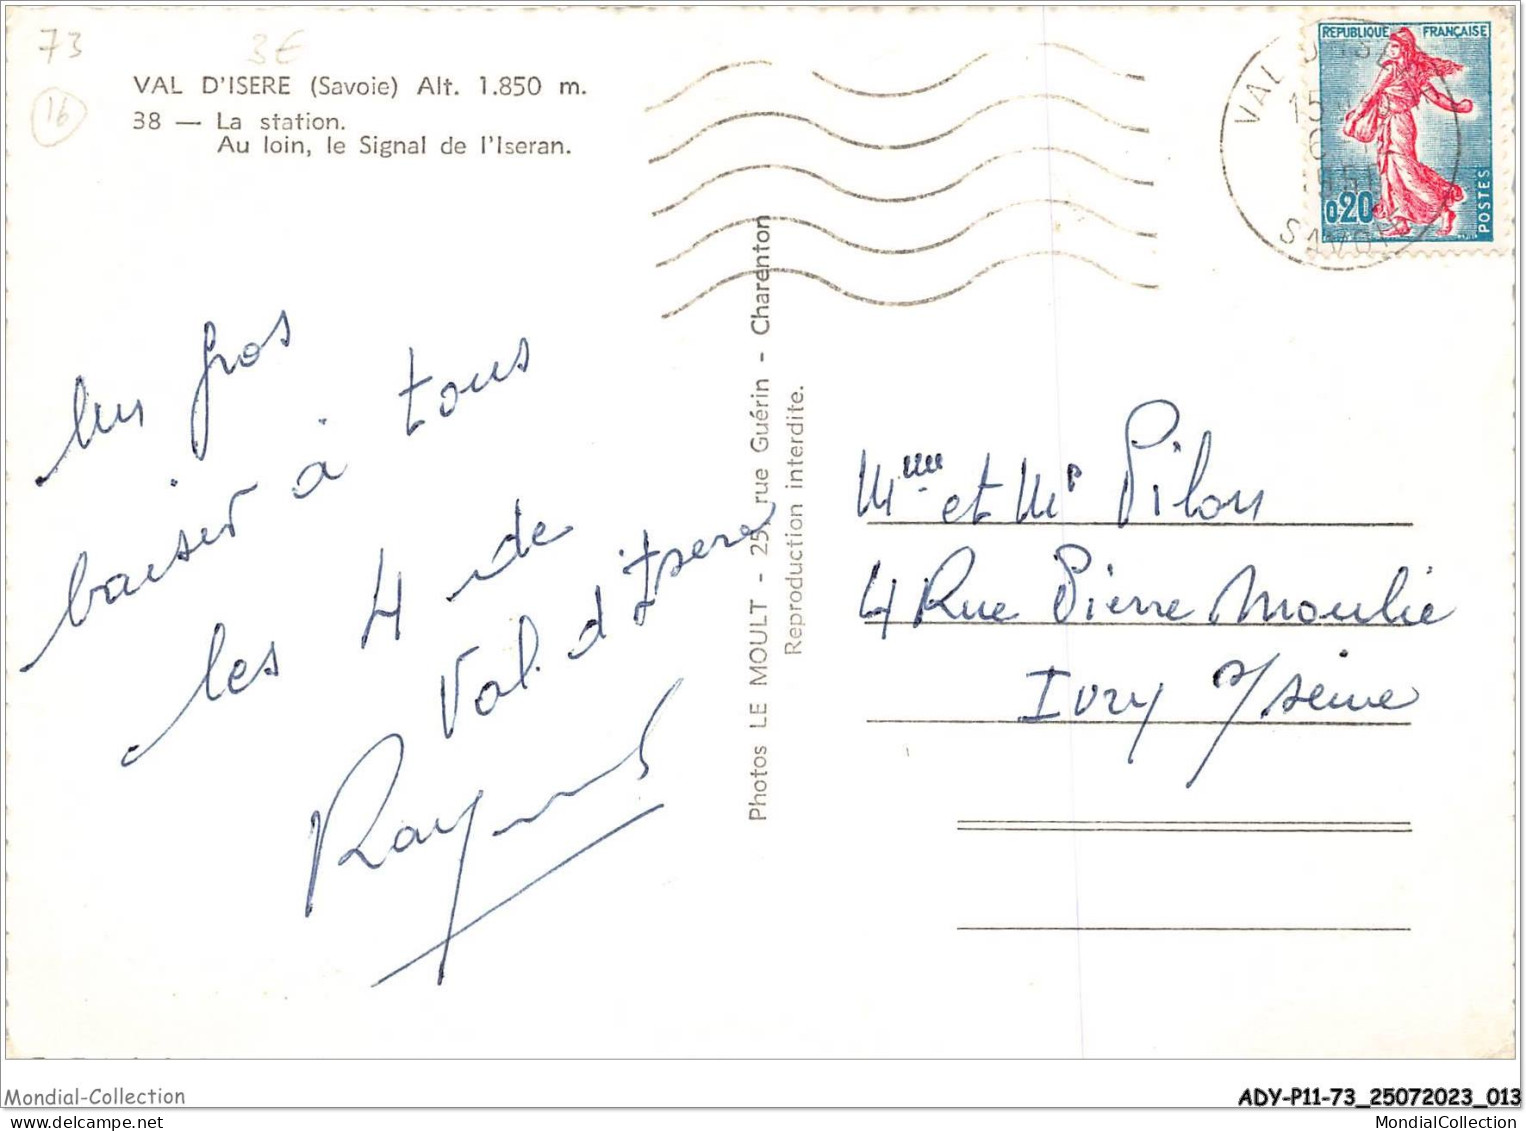 73
3€
16
VAL D'ISERE (Savoie) Alt. 1.850 m.
38 — La station.
Au loin, le Signal de l'Iseran.
REPUBLIQUE FRANÇAISE
0,20
POSTES
VAL D'IS
15
6
SAVOIE
Un gros
baiser à tous
les 4 de
Val. d'Isere
Raymond
Photos LE MOULT - 25, rue Guérin - Charenton
Reproduction interdite.
Mme et Mr Pilon
4 Rue Pierre Moulie
Ivry s/seine
Mondial-Collection
ADY-P11-73_25072023_013
MondialCollection